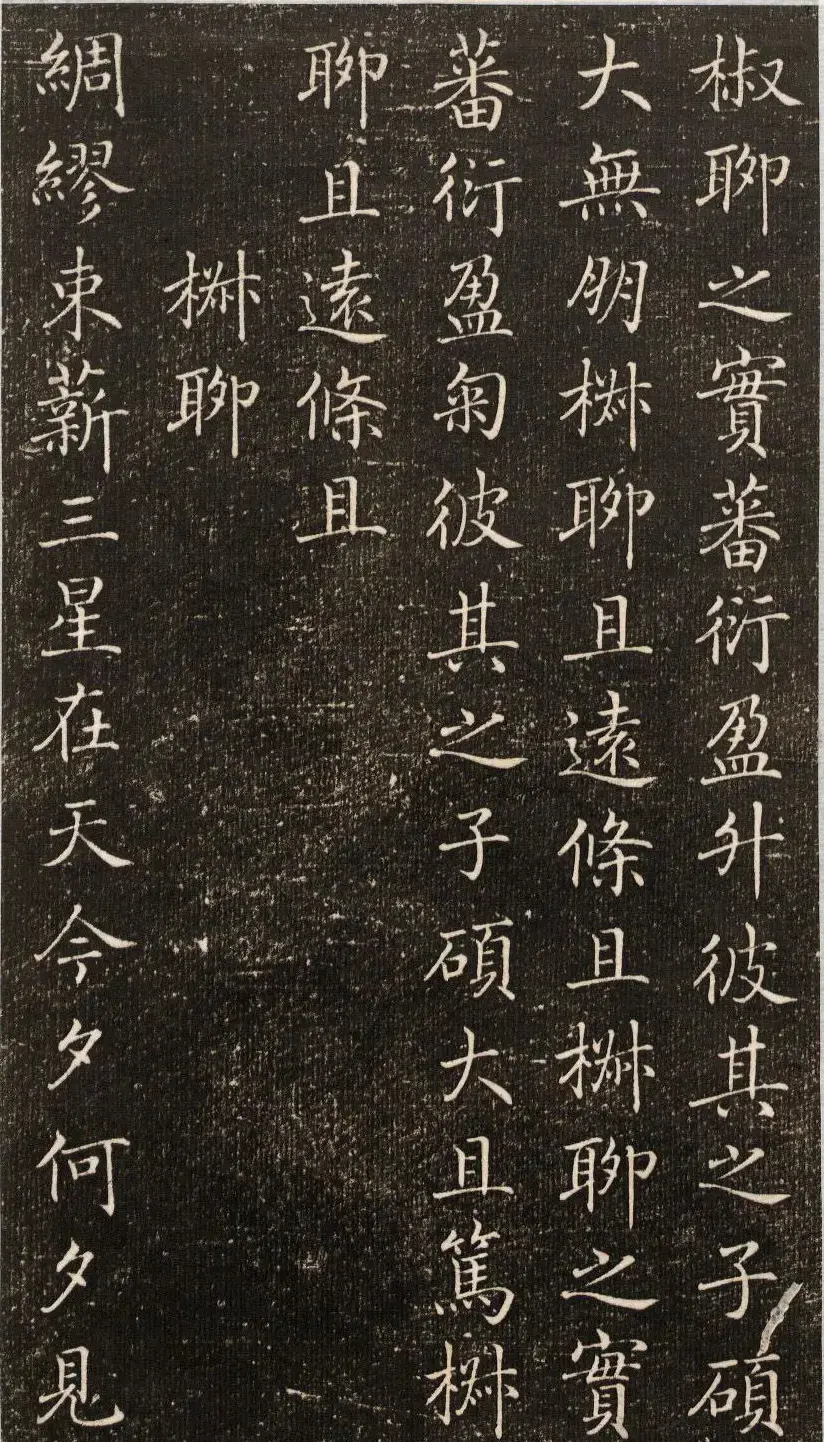 椒聊之實蕃衍盈升彼其之子碩
大無朋椒聊且遠條且椒聊之實
蕃衍盈匊彼其之子碩大且篤椒
聊且遠條且
椒聊
綢繆束薪三星在天今夕何夕見